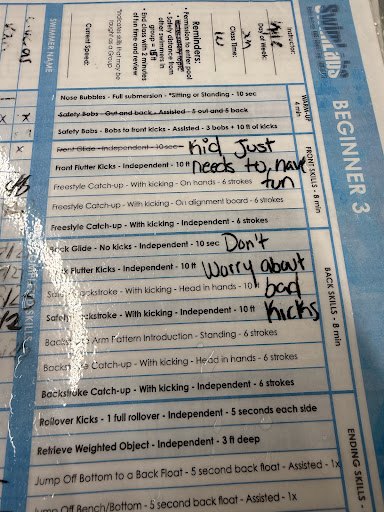 Swim Labs
BEGINNER 3
Instructor:
Kyle
Day of Week:
Class Time:
Reminders:
• Permission to enter pool
• Safety distance from other swimmers in group
• End class with 2 minutes of fun time and review
*Indicates skills that may be taught as a Group
Current Speed:
SWIMMER NAME
WARM-UP
4 min
Nose Bubbles - Full submersion - *Sitting or Standing - 10 sec
Safety Bobs - Out and back - Assisted - 5 out and 5 back
Safety Bobs - Bobs to front kicks - Assisted - 3 bobs + 10 ft of kicks
FRONT SKILLS - 8 min
Front Glide - Independent - 10 sec
Kid Just
Front Flutter Kicks - Independent - 10 ft
needs to have
Freestyle Catch-up - With kicking - On hands - 6 strokes
fun
Freestyle Catch-up - With kicking - On alignment board - 6 strokes
Freestyle Catch-up - With kicking - Independent - 6 strokes
BACK SKILLS - 8 min
Back Glide - No kicks - Independent - 10 sec
Don't
Back Flutter Kicks - Independent - 10 ft
Worry about
Safety Backstroke - With kicking - Head in hands - 10 ft
bad
Safety Backstroke - With kicking - Independent - 10 ft
Kicks
Backstroke Arm Pattern Introduction - Standing - 6 strokes
Backstroke Catch-up - With kicking - Head in hands - 6 strokes
Backstroke Catch-up - With kicking - Independent - 6 strokes
ENDING SKILLS -
Rollover Kicks - 1 full rollover - Independent - 5 seconds each side
Retrieve Weighted Object - Independent - 3 ft deep
Jump Off Bottom to a Back Float - 5 second back float - Assisted - 1x
Jump Off Bench/Bottom - 5 second back float - Assisted - 1x